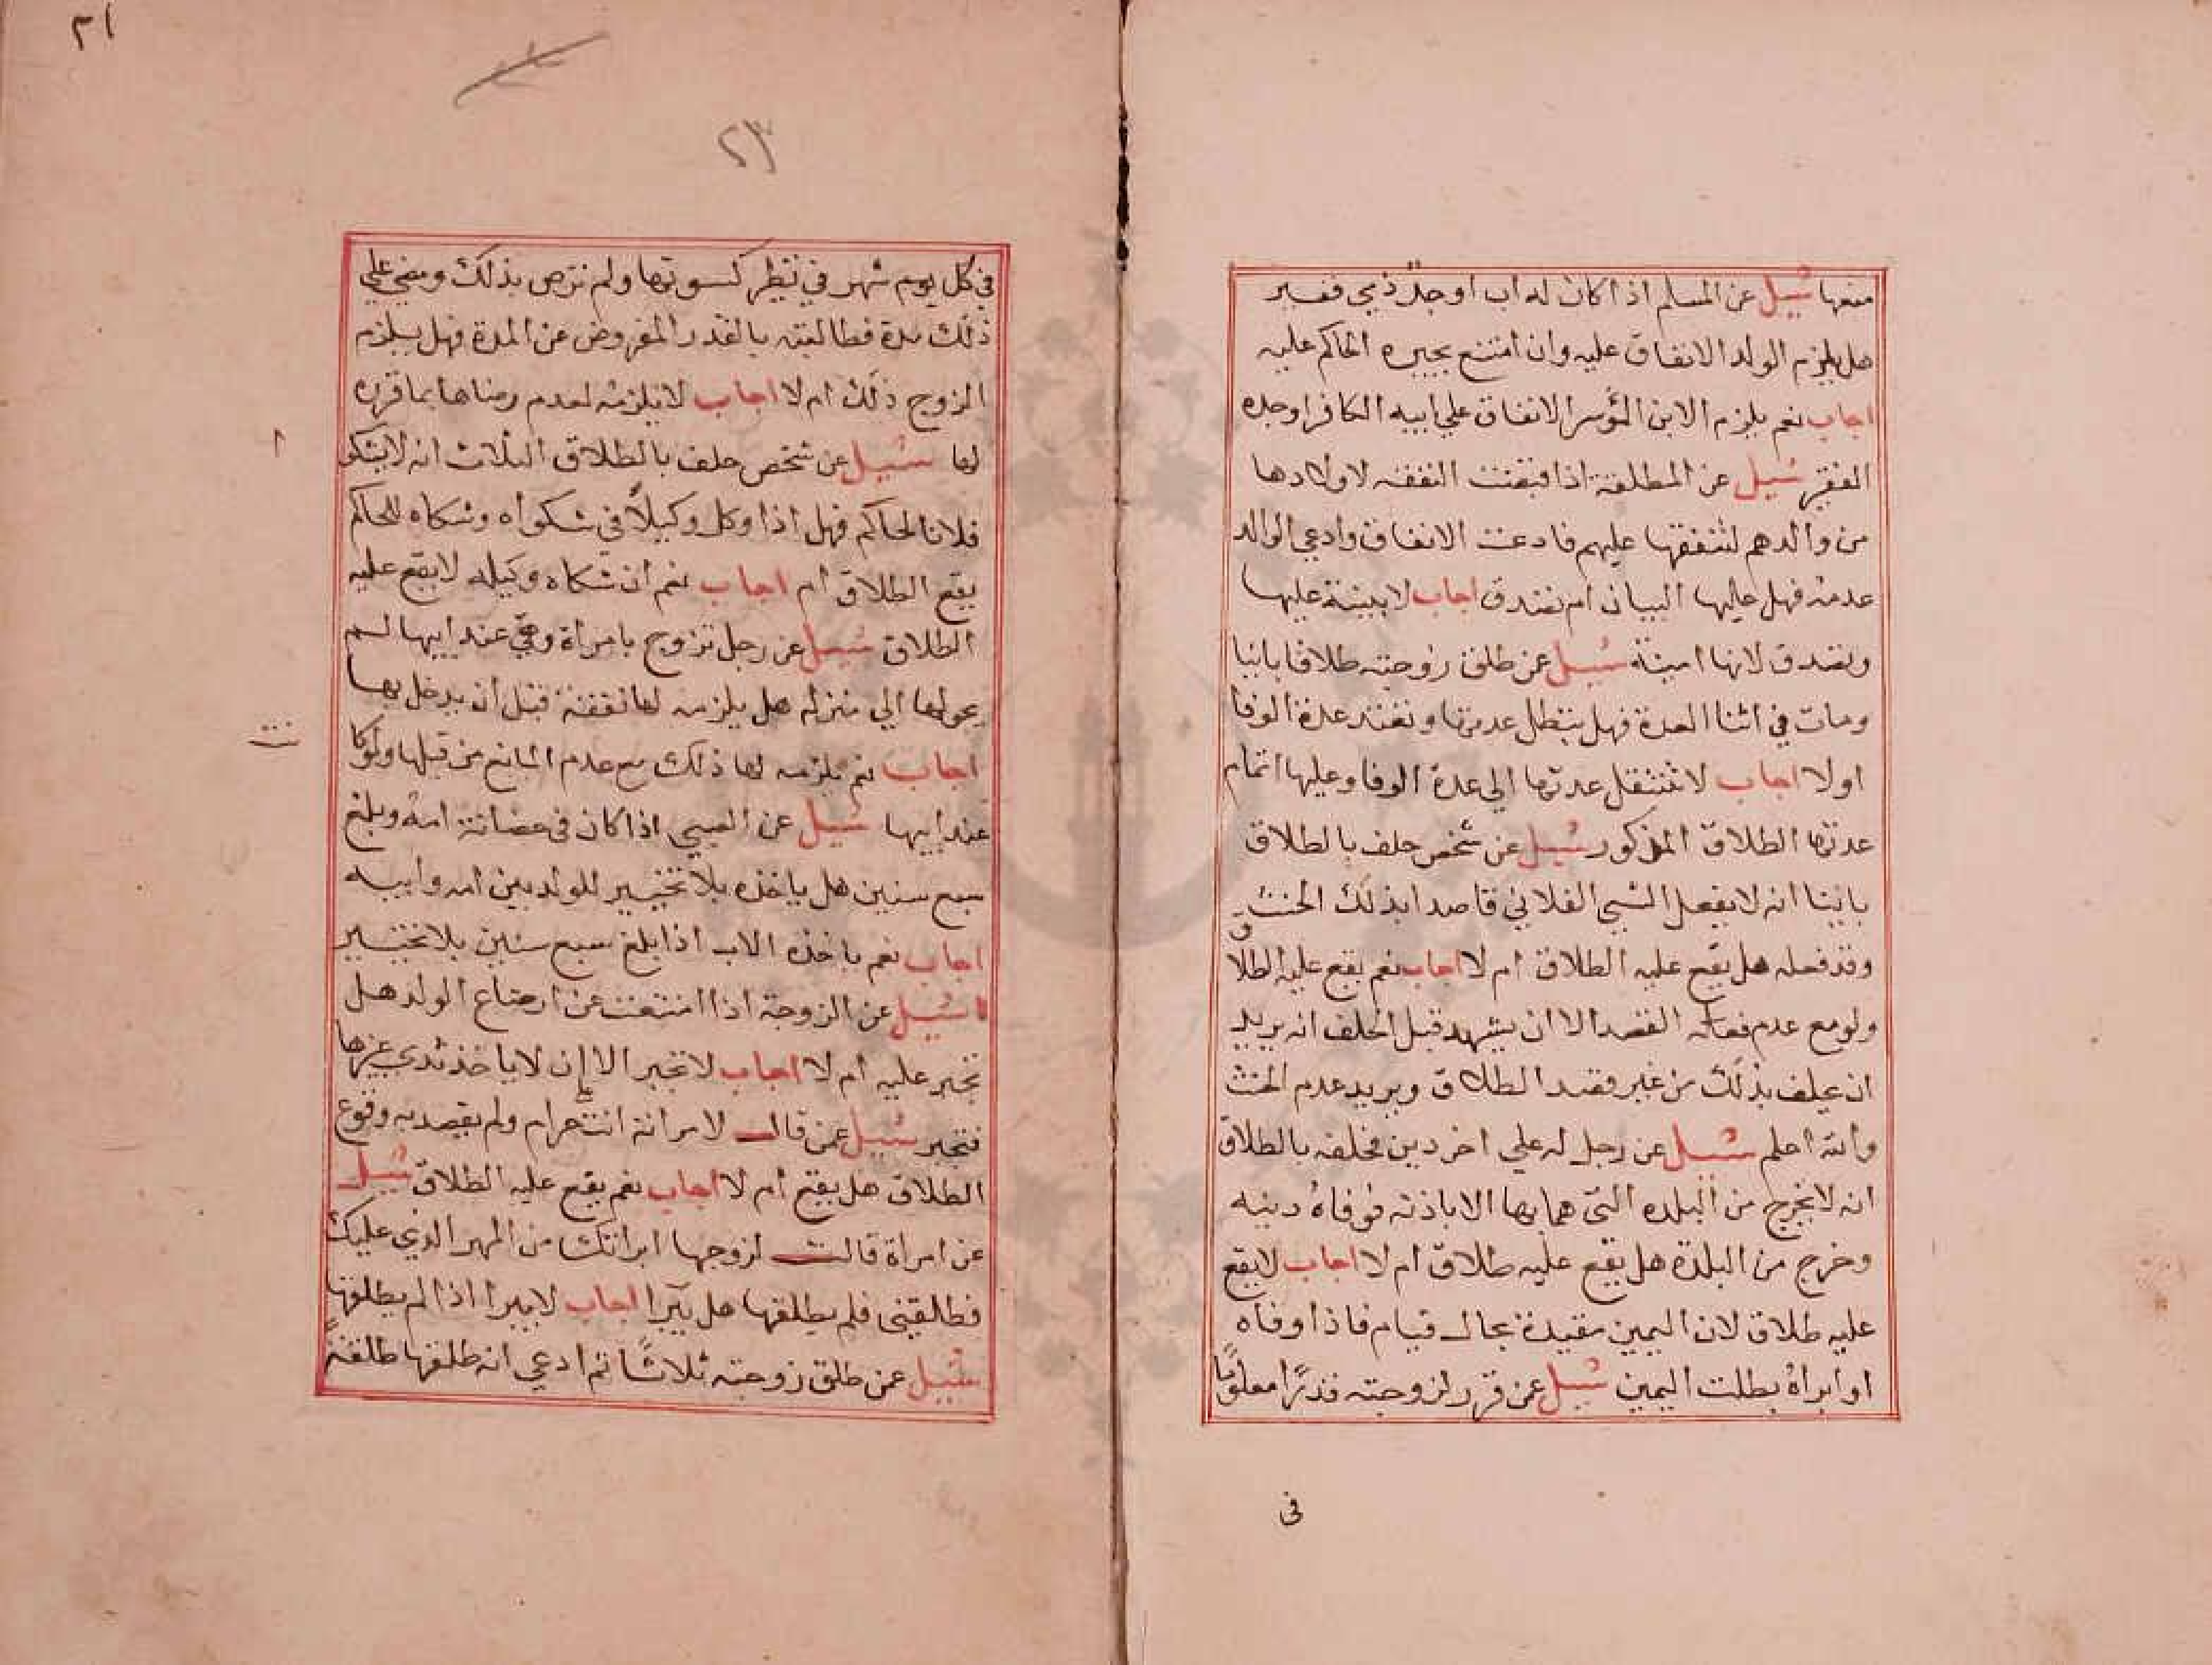 منعها سئيل عن المسلم اذا كان له اب او جد ذمي فقير
هل يلزم الولد الانفاق عليه وان امتنع يجبره الحاكم عليه
اجاب نعم يلزم الابن المؤسر الانفاق علي ابيه الكافر او جده
الفقير سئيل عن المطلقة اذا قبضت النفقه لاولادها
من والدهم لتنفقها عليهم فادعت الانفاق وادعي الوالد
عدمه فهل عليها البيان ام تصدق اجاب لا بينة عليها
وتصدق لانها امينة سئيل عن طلق زوجته طلاقا بائنا
ومات في اثنا العدة فهل تبطل عدتها وتعتد عدة الوفا
او لا اجاب لا تنتقل عدتها الي عدة الوفا وعليها اتمام
عدتها الطلاق المذكور سئيل عن شخص حلف بالطلاق
بائنا انه لا يفعل الشي الفلاني قاصدا بذلك الحنث
وقد فعله هل يقع عليه الطلاق ام لا اجاب نعم يقع عليه الطلاق
ولو مع عدم القصد الا ان يشهد قبل الحلف انه يريد
ان يحلف بذلك من غير قصد الطلاق ويريد عدم الحنث
والله اعلم سئيل عن رجل له علي اخر دين فحلفه بالطلاق
انه لا يخرج من البلده التي هما بها الا باذنه فوفاه دينه
وخرج من البلدة هل يقع عليه طلاق ام لا اجاب لا يقع
عليه طلاق لان اليمين مقيدة بحال قيام فاذا وفاه
او ابراه بطلت اليمين سئيل عن قرر لزوجته قدرا معلوما
في
٢١
٢٣
في كل يوم شهر في نظير كسوتها ولم ترض بذلك ومضي علي
ذلك مدة فطالبته بالقدر المفروض عن المدة فهل يلزم
الزوج ذلك ام لا اجاب لا يلزمه لعدم رضاها بما قرره
لها سئيل عن شخص حلف بالطلاق الثلاث انه لا يشكو
فلانا لحاكم فهل اذا وكل وكيلاً في شكواه وشكاه للحاكم
يقع الطلاق ام اجاب نعم ان شكاه وكيله لا يقع عليه
الطلاق سئيل عن رجل تزوج بامراة وهي عند ابيها لم
يحولها الي منزله هل يلزمه لها نفقة قبل ان يدخل بها
اجاب نعم يلزمه لها ذلك مع عدم المانع من قبلها ولو كا
عند ابيها سئيل عن الصبي اذا كان في حضانة امه وبلغ
سبع سنين هل ياخذه بلا تخيير للولد بين امه وابيه
اجاب نعم ياخذه الاب اذا بلغ سبع سنين بلا تخيير
سئيل عن الزوجة اذا امتنعت عن ارضاع الولد هل
تجبر عليه ام لا اجاب لا تجبر الا ان لا ياخذ ثدي غيرها
فتجبر سئيل عمن قال لامراته انت حرام ولم يقصد به وقوع
الطلاق هل يقع ام لا اجاب نعم يقع عليه الطلاق سئيل
عن امراة قالت لزوجها ابراتك من المهر الذي عليك
فطلقيني فلم يطلقها هل يبرا اجاب لا يبرا اذا لم يطلقها
سئيل عمن طلق زوجته ثلاثاً ثم ادعي انه طلقها طلقة